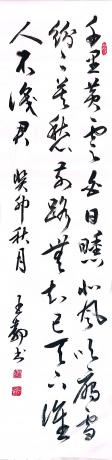 千里黄雲白日曛北風吹雁雪
紛紛莫愁前路無知己天下誰
人不識君 癸卯秋月 王 書